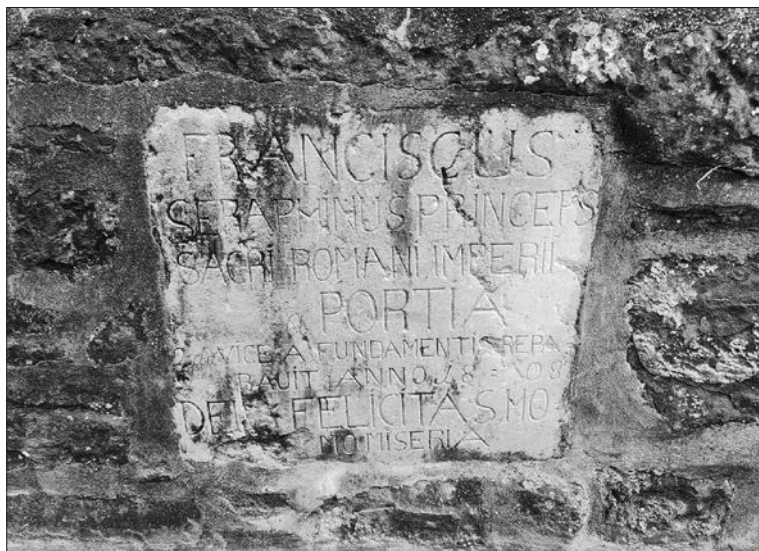 FRANCISCUS
SERAPHINUS PRINCEPS
SACRI ROMANI IMPERII
a PORTIA
2da VICE A FUNDAMENTIS REPA-
RAUIT ANNO 18-08
DEI FELICITAS, MO-
MO MISERIA